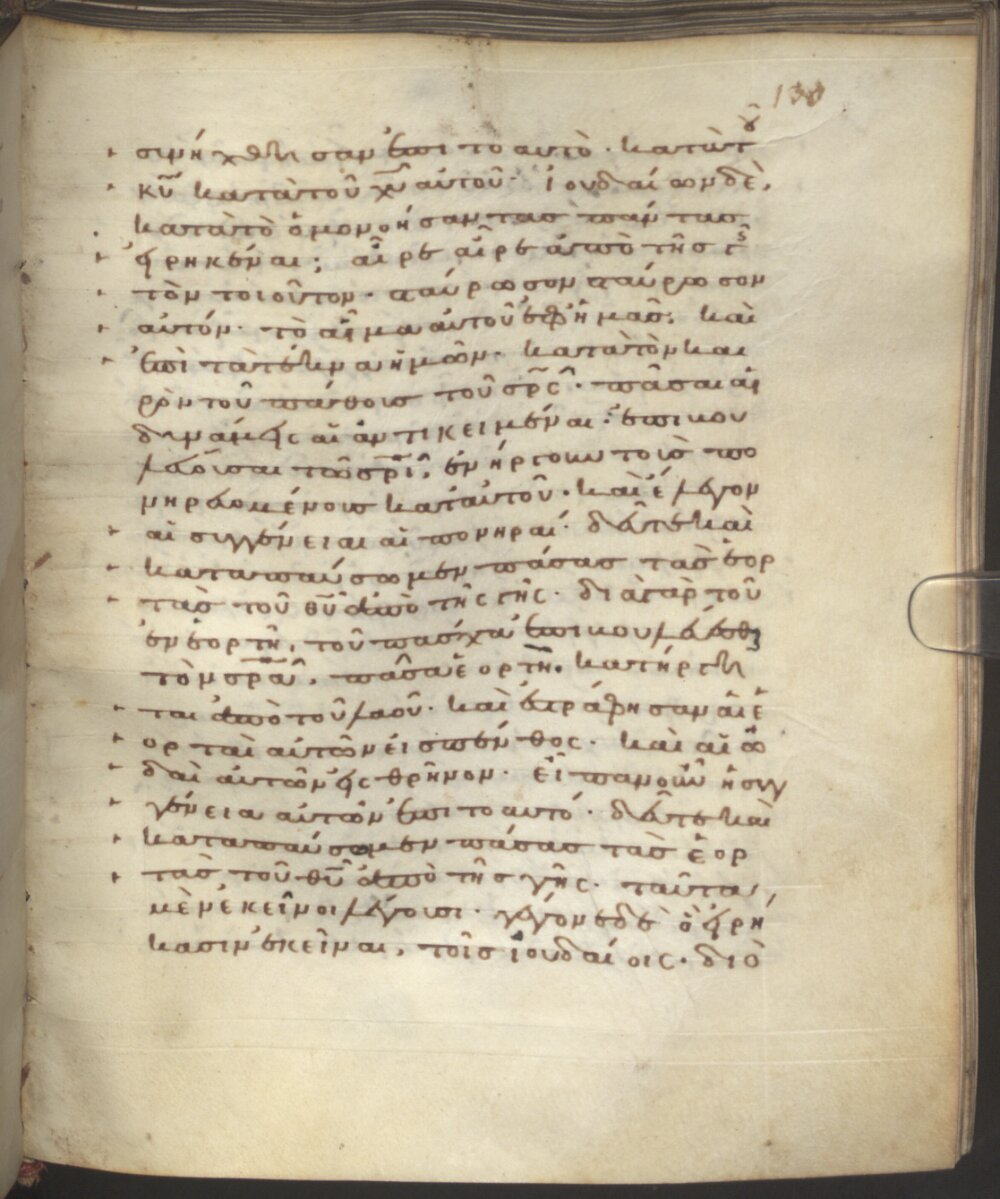 130
συνήχθησαν ἐπι τὸ αυτὸ· κατὰ τοῦ
κυ̅ κατὰ τοῦ χυ̅ αὐτοῦ· ἰουδαίων δὲ,
κατὰ τὸ ὁμονοήσαντας πάντας
εἰρηκέναι; αἶρε αἶρε ἀπὸ τῆς γῆς
τὸν τοιοῦτον· σταύρωσον σταύρωσον
αὐτόν· τὸ αἷμα αὐτοῦ ἐφ' ἡμᾶς· καὶ
ἐπὶ τὰ τέκνα ἡμῶν· κατὰ τὸν και
ρὸν τοῦ πάθους τοῦ σρ̅ς· πᾶσαι αἱ
δυνάμεις αἱ ἀντικείμεναι· ἐπιβου
λεύουσαι τῶ σρ̅ι, ἐνήργουν τοῖς πο
νηρευομένοις κατ αὐτοῦ· καὶ ἔλεγον
αἱ συγγένειαι αἱ πονηραί· δεῦτε καὶ
καταπαύσωμεν πάσας τὰς ἑορ
τὰς τοῦ θυ̅ ἀπὸ τῆς γῆς· διὰ γὰρ τοῦ
ἐν ἑορτῆ, τοῦ πασχα ἐπιβουλεύεσθαι
τὸν σρ̅α, πᾶσα ἑορτὴ, κατήργη
ται ἀπὸ τοῦ λαοῦ· καὶ ἐστράφησαν αἱ ἑ
ορταὶ αὐτῶν εἰς πένθος· καὶ αἱ ὠ
δαὶ αὐτῶν εἰς θρῆνον· εἶπαν οὖν ἡ συγ
γένεια αὐτῶν ἐπι το αυτό· δεῦτε καὶ
καταπαύσωμεν πάσας τὰς ἑορ
τὰς τοῦ θυ̅ ἀπὸ τῆς γῆς· ταῦτα
μὲν ἐκεῖνοι λέγουσι· γέγονε δὲ ὃ εἰρή
κασιν ἐκεῖναι, τοῖς ἰουδαίοις· διὸ